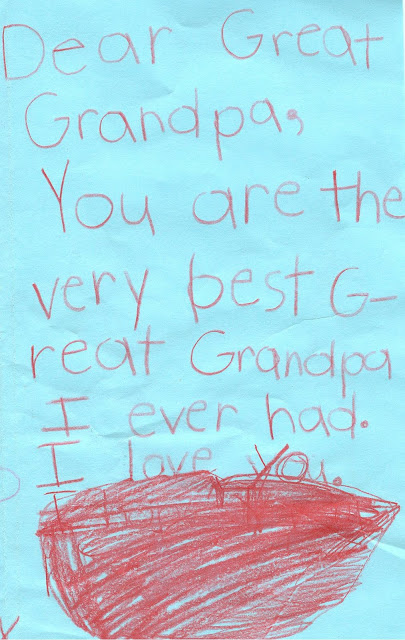 Dear Great
Grandpa,
You are the
very best G-
reat Grandpa
I ever had.
I love you.